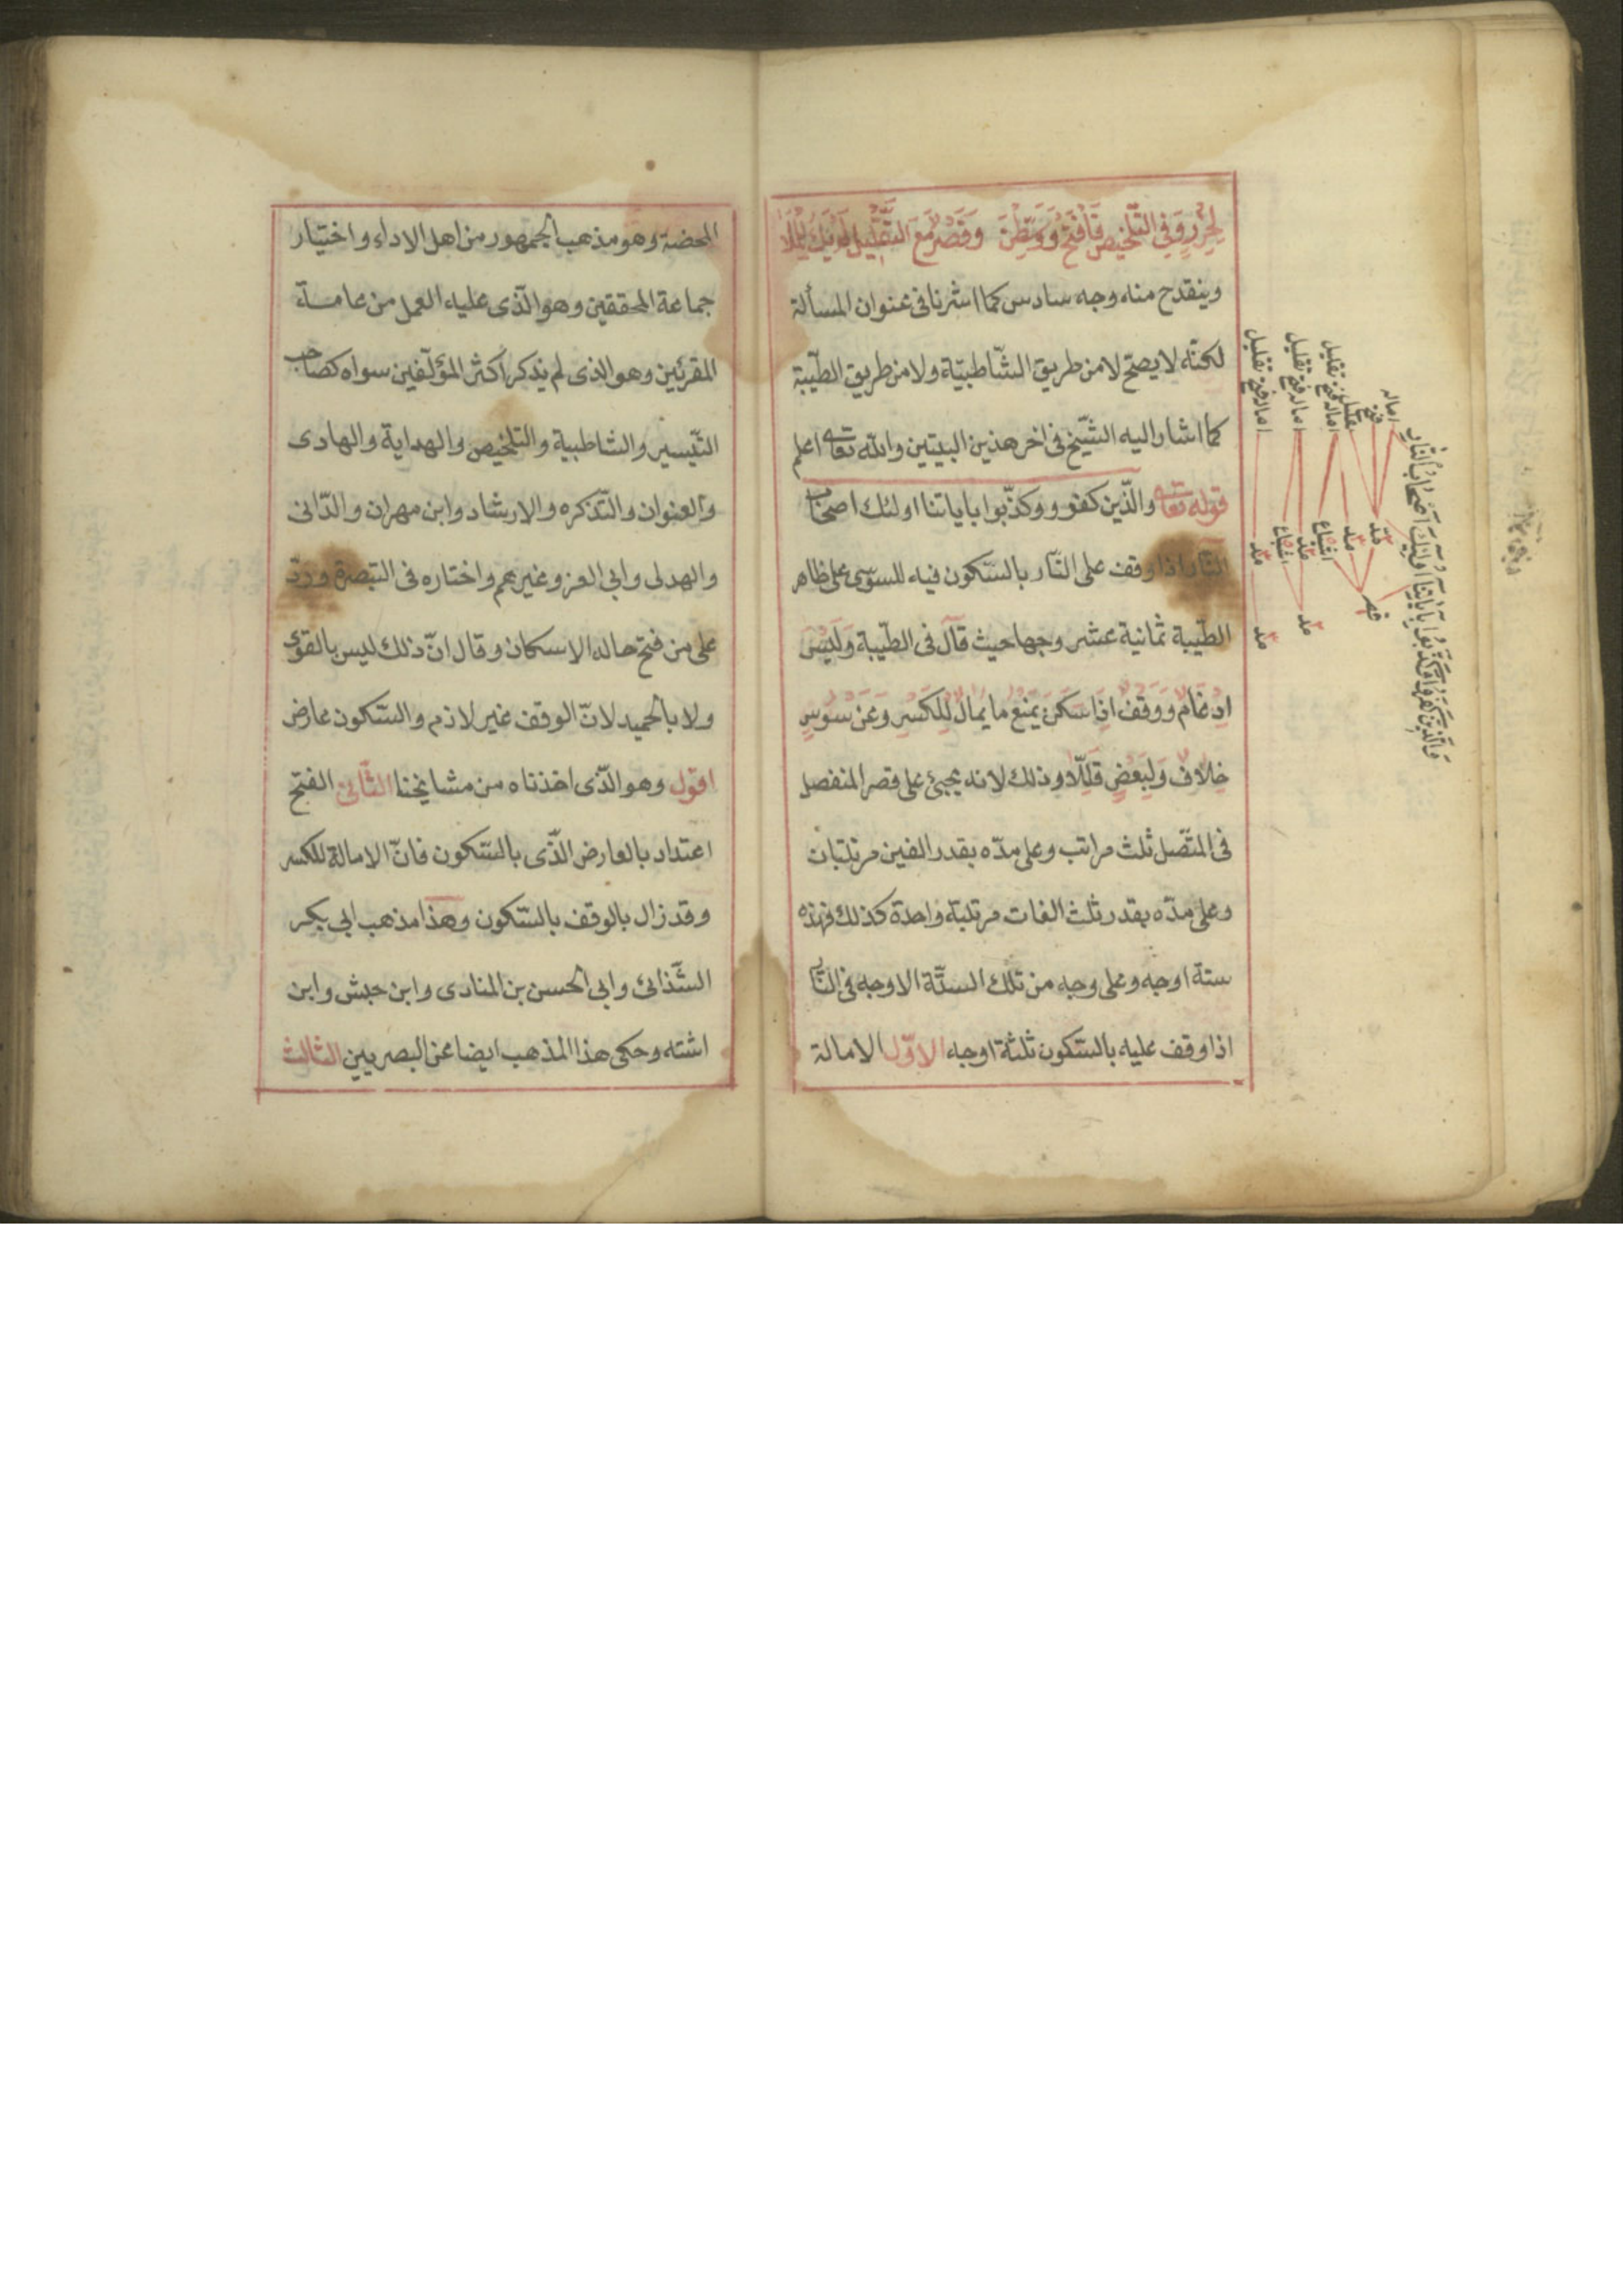 لحرز وفي التلخيص فافتح ووسطن وقصر مع التقليل لم يك للملا
وينقدح منه وجه سادس كما اشرنا فى عنوان المسألة
لكنّه لا يصحّ لا من طريق الشّاطبيّة ولا من طريق الطّيّبة
كما اشار اليه الشّيخ فى اخر هذين البيتين والله تعالى اعلم
قوله تعالى والّذين كفروا وكذّبوا باياتنا اولئك اصحاب
النّار اذا وقف على النّار بالسّكون فيه للسوّسى على ظاهر
الطّيبة ثمانية عشر وجها حيث قال فى الطّيبة وَلَيْسَ
اِدْغَامٌ وَوَقْفٌ اِذَا سَكَنَ يَمْنَعُ مَا يُمَالُ لِلْكَسْرِ وَعَنْ سُوسٍ
خِلَافٌ وَلِبَعْضٍ قُلِّلَا وذلك لانه يجيئ على قصر المنفصل
فى المتّصل ثلث مراتب وعلى مدّه بقدر الفين مرتبتان
وعلى مدّه بقدر ثلث الفات مرتبة واحدة كذلك فهذه
ستة اوجه وعلى وجه من تلك الستّة الاوجه فى النّار
اذا وقف عليه بالسّكون ثلثة اوجه الاوّل الامالة
والّذين كفروا وكذّبوا باياتنا اولئك اصحاب النّار
اماله
فتح
تقليل
اماله فتح تقليل
اماله فتح تقليل
اماله فتح تقليل
مدّ
مدّ
اشباع
مدّ
اشباع
مدّ
قصر
مدّ
مدّ
المحضة وهو مذهب الجمهور من اهل الاداء واختيار
جماعة المحققين وهو الّذى عليه العمل من عامة
المقرئين وهو الذى لم يذكر اكثر المؤلّفين سواه كصاحب
التّيسير والشاطبية والتلخيص والهداية والهادى
والعنوان والتّذكره والارشاد وابن مهران والدّانى
والهدلى وابى العز وغيرهم واختاره فى التبصرة وردّ
على من فتح حاله الاسكان وقال انّ ذلك ليس بالقوى
ولا بالجيد لانّ الوقف غير لازم والسّكون عارض
اقول وهو الّذى اخذناه من مشايخنا الثّانى الفتح
اعتداد بالعارض الّذى بالسّكون فانّ الامالة للكسر
وقد زال بالوقف بالسّكون وهذا مذهب ابى بكر
الشّذائى وابى الحسن بن المنادى وابن حبش وابن
اشته وحكى هذا المذهب ايضا عن البصريين الثالث